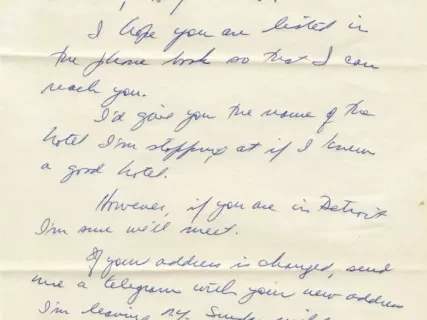 I hope you are listed in
the phone book so that I can
reach you.
I'd give you the name of the
hotel I'm stopping at if I knew
a good hotel.
However, if you are in Detroit
I'm sure we'll meet.
If your address is changed, send
me a telegram with your new address
I'm leaving N.Y. Sunday